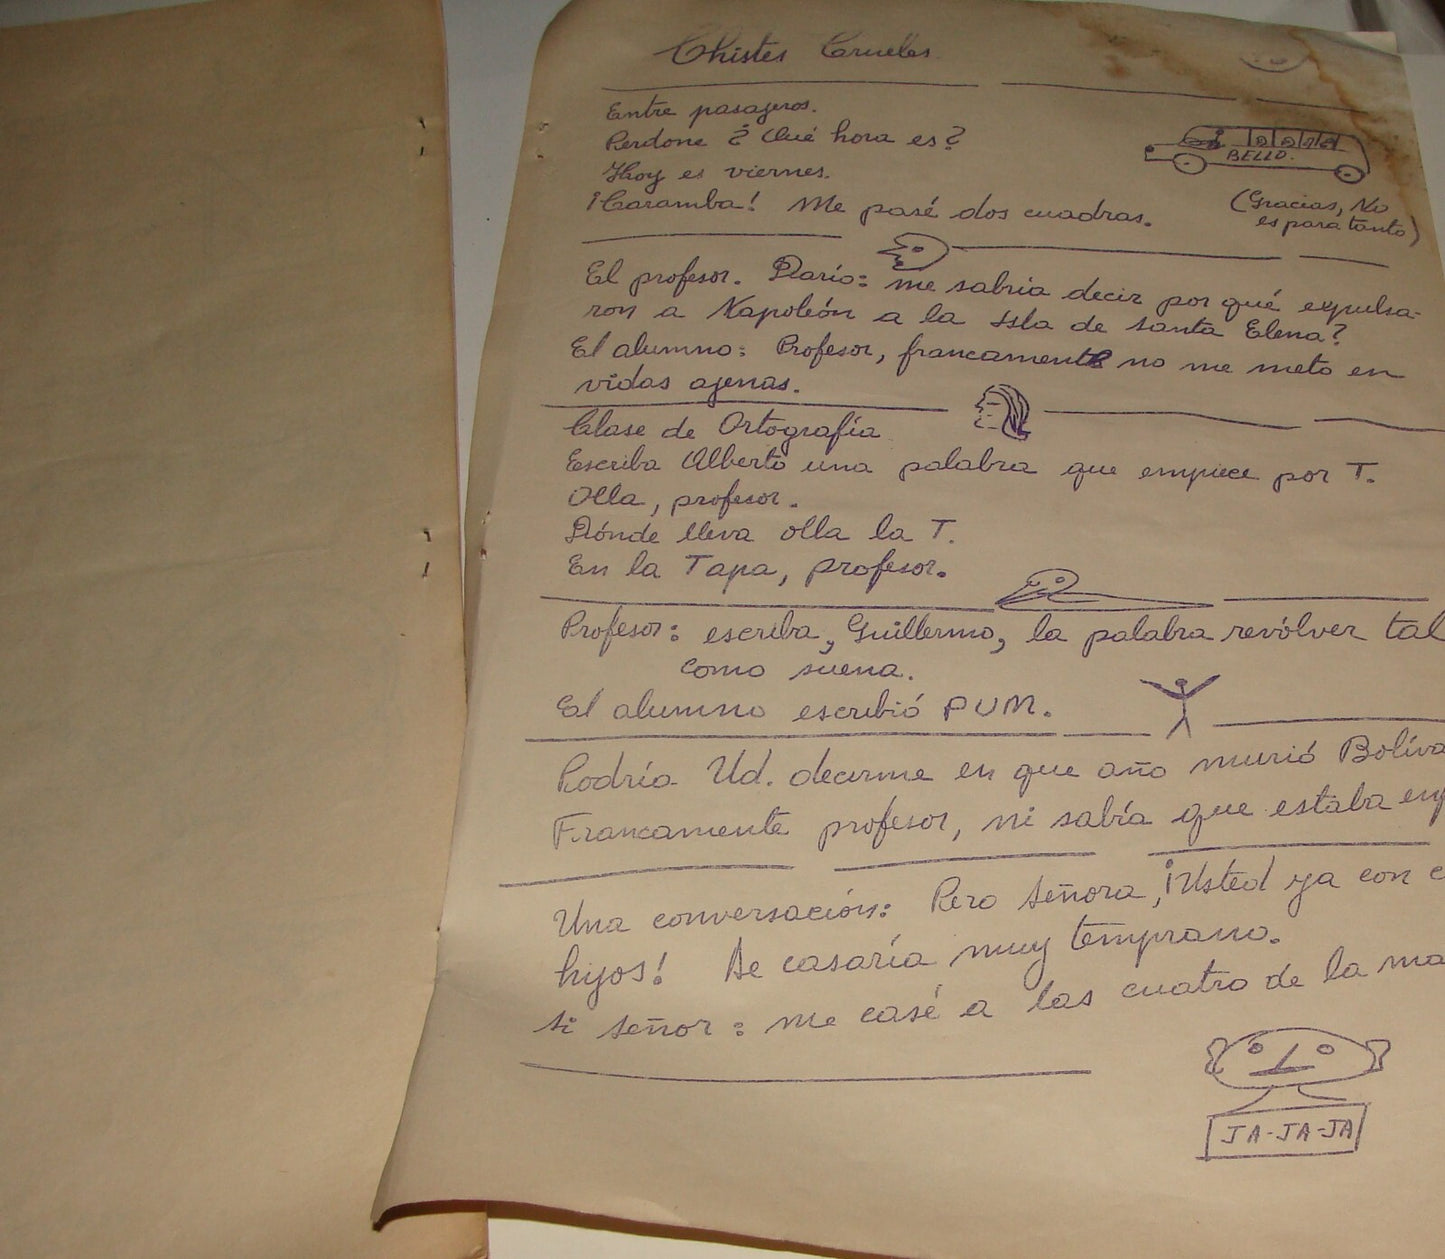 Chistes Crueles.
Entre pasajeros.
Perdone ¿ Qué hora es?
Hoy es viernes.
¡Caramba! Me pasé dos cuadras.
BELLO.
(Gracias, No
es para tanto)
El profesor. Darío: me sabría decir por qué expulsa-
ron a Napoleón a la Isla de Santa Elena?
El alumno: Profesor, francamente no me meto en
vidas ajenas.
Clase de Ortografía
Escriba Alberto una palabra que empiece por T.
Olla, profesor.
Dónde lleva olla la T.
En la Tapa, profesor.
Profesor: escriba, Guillermo, la palabra revólver tal
como suena.
El alumno escribió PUM.
Podría Ud. decirme en que año murió
Francamente profesor, ni sabía que estaba
Una conversación: Pero Señora, ¡Usted ya con
hijos! Se casaría muy temprano.
Si señor: me casé a las cuatro de la
JA-JA-JA